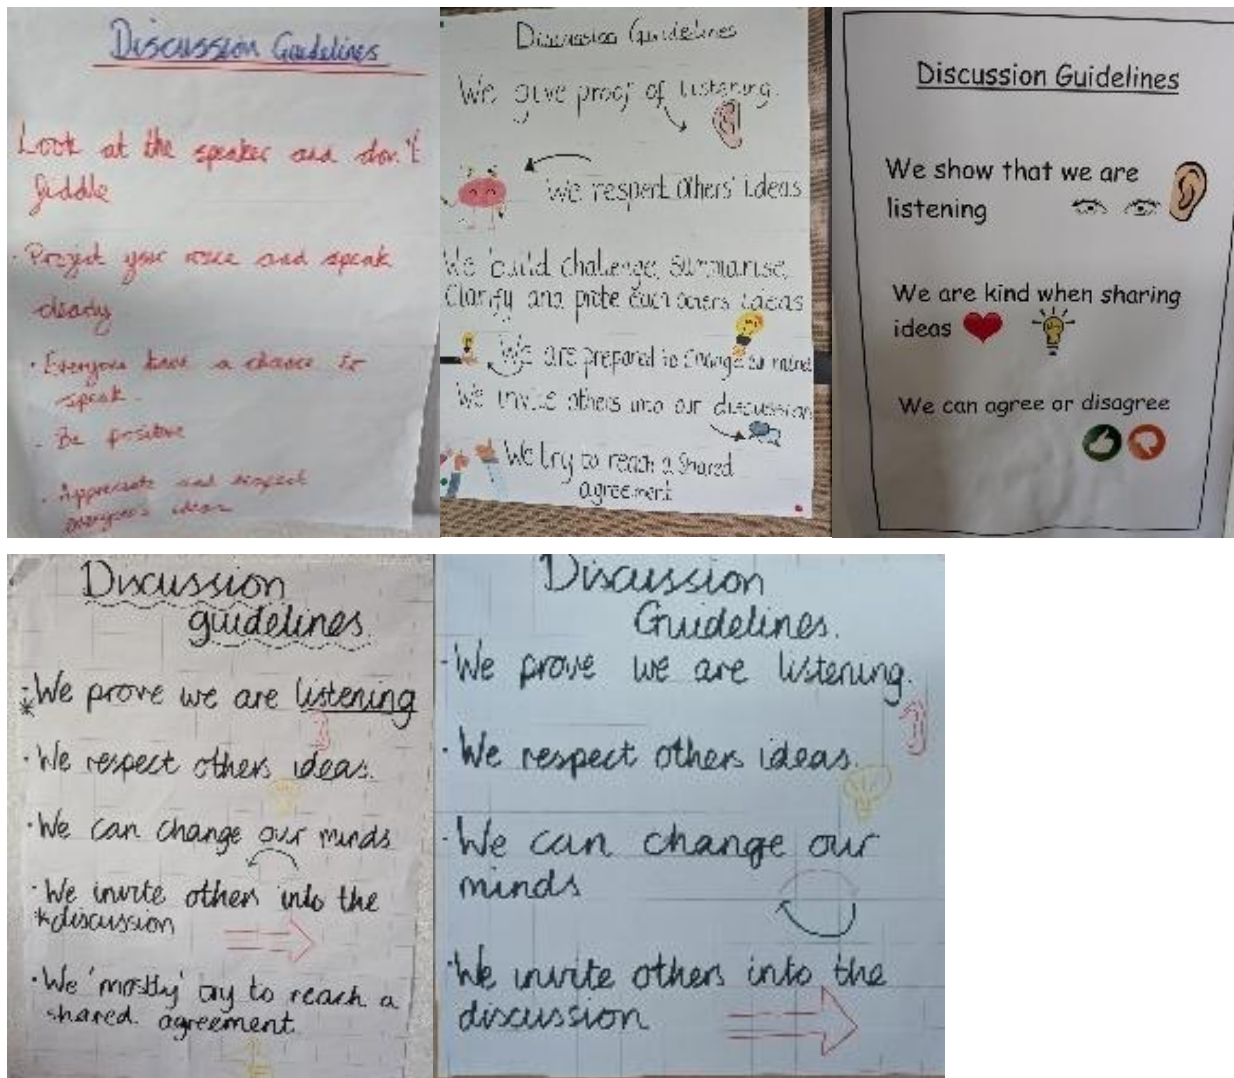 Discussion Guidelines
Look at the speaker and don't
fiddle
· Project your voice and speak
clearly
· Everyone have a chance to
speak.
- Be positive
· Appreciate and respect
everyone's ideas
Discussion Guidelines
We give proof of listening.
We respect others' ideas
We build challenge, summarise,
Clarify and probe each others ideas
We are prepared to change our mind
We invite others into our discussion
We try to reach a shared
agreement
Discussion Guidelines
We show that we are
listening
We are kind when sharing
ideas
We can agree or disagree
Discussion
guidelines.
* · We prove we are listening
· We respect others ideas.
· We can change our minds
· We invite others into the
* discussion
· We 'mostly' try to reach a
shared agreement
Discussion
Guidelines.
· We prove we are listening.
· We respect others ideas.
· We can change our
minds
· We invite others into the
discussion